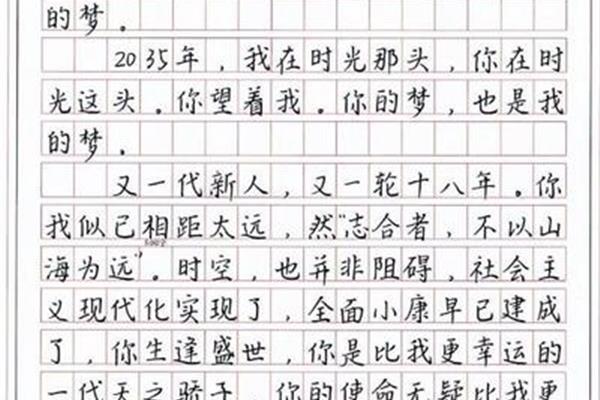 的梦.
2035年,我在时光那头,你在时
光这头.你望着我.你的梦,也是我
的梦.
又一代新人,又一轮十八年.你
我似已相距太远,然“志合者,不以山
海为远”.时空,也并非阻碍,社会主
义现代化实现了,全面小康早已建成
了,你生逢盛世,你是比我更幸运的
一代天之骄子,你的使命无疑比我更